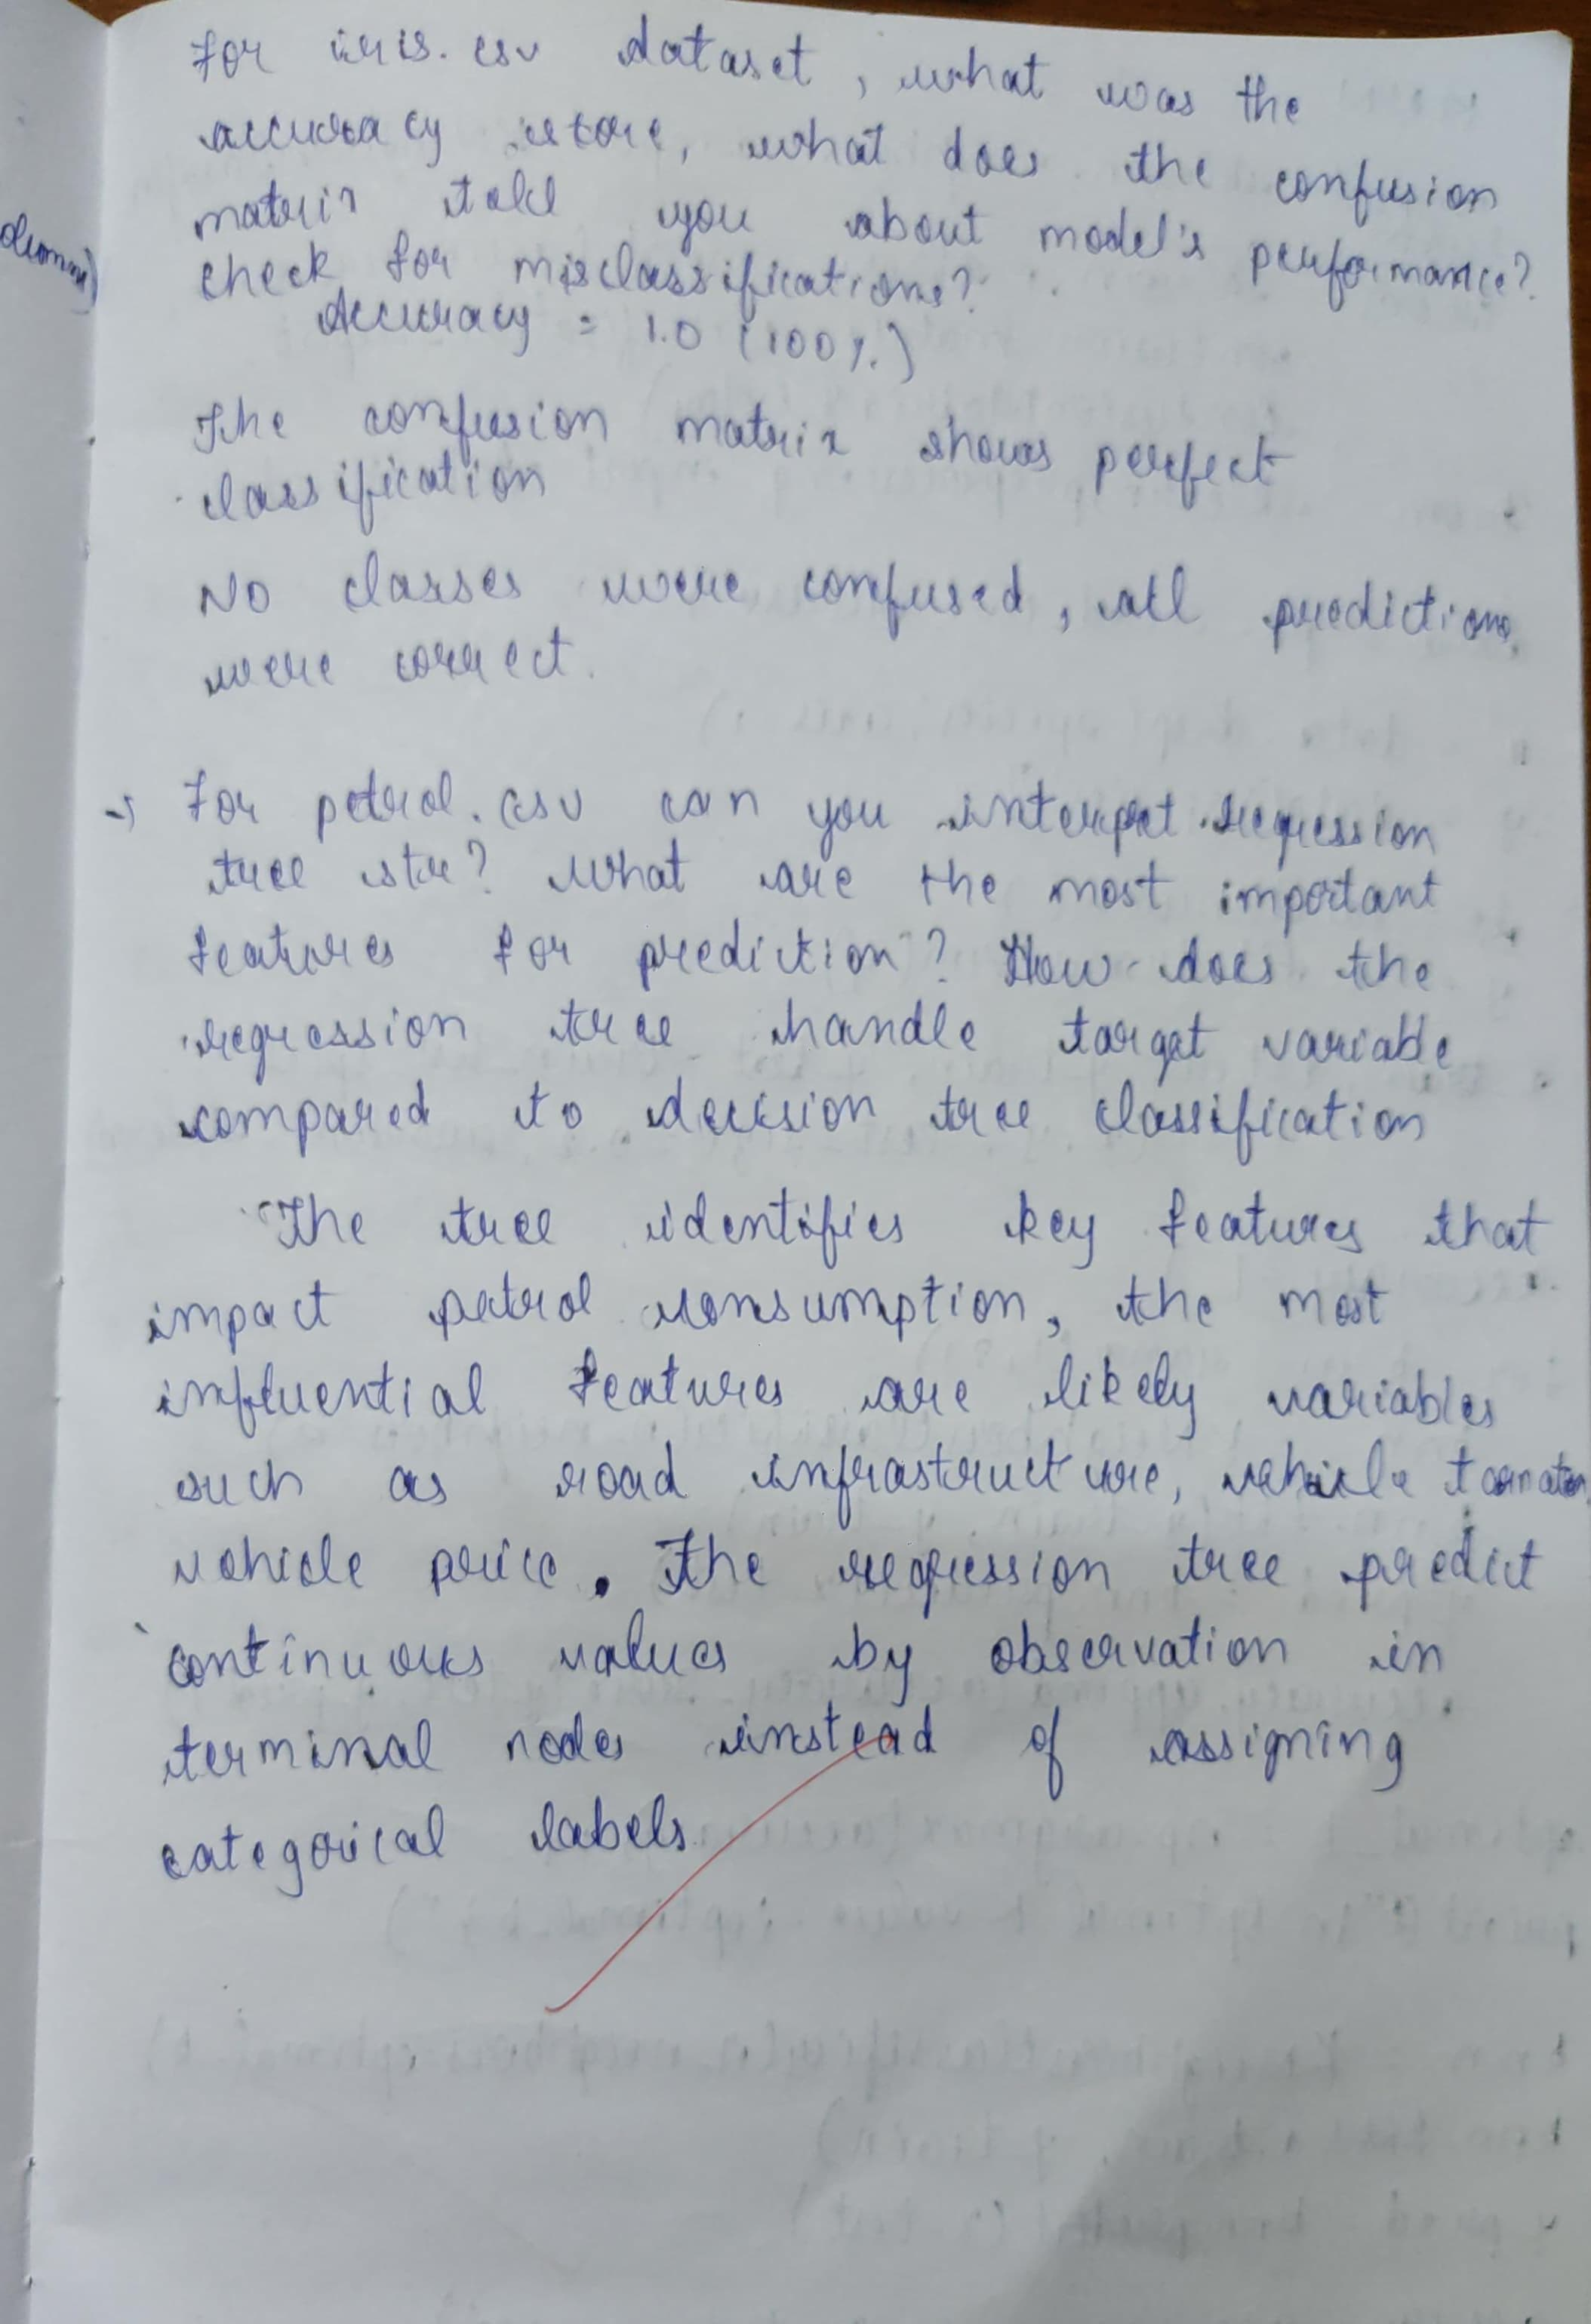 For iris.csv dataset, what was the
accuracy score, what does the confusion
matrix tell you about model's performance?
check for misclassifications?
Accuracy = 1.0 (100%.)
The confusion matrix shows perfect
classification
No classes were confused, all predictions
were correct.
→ For petrol.csv can you interpret regression
tree str? What are the most important
features for prediction? How does the
regression tree handle target variable
compared to decision tree classification
The tree identifies key features that
impact petrol consumption, the most
influential features are likely variables
such as road infrastructure, vehicle
vehicle price. The regression tree predict
continuous values by observation in
terminal nodes instead of assigning
categorical labels